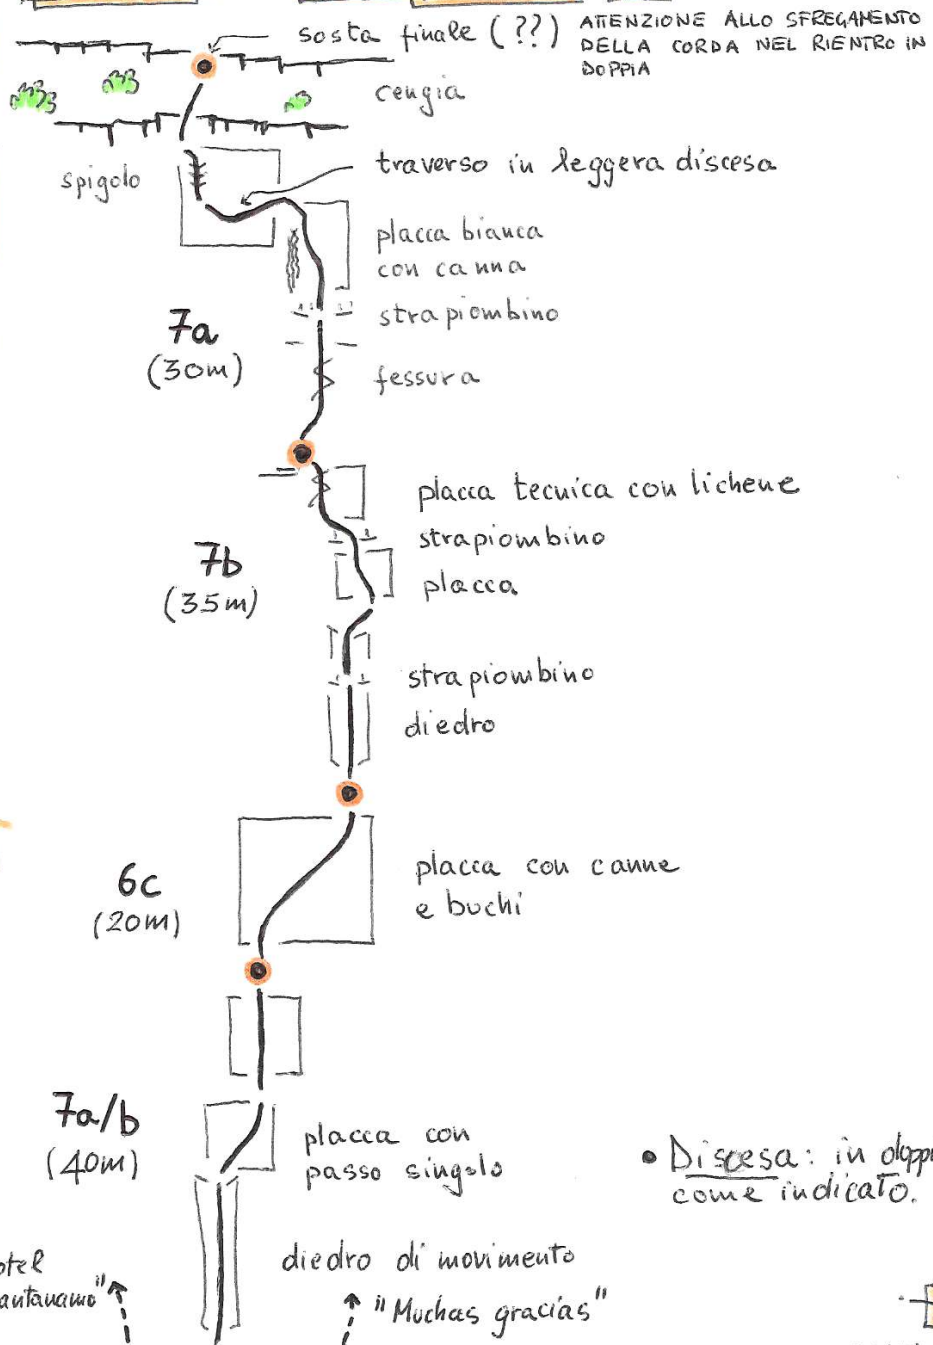 sosta finale (??)
ATTENZIONE ALLO SFREGAMENTO
DELLA CORDA NEL RIENTRO IN
DOPPIA
cengia
spigolo
traverso in leggera discesa
placca bianca
con canna
strapiombino
7a
(30m)
fessura
placca tecnica con lichene
strapiombino
7b
(35m)
placca
strapiombino
diedro
6c
(20m)
placca con canne
e buchi
7a/b
(40m)
placca con
passo singolo
• Discesa: in doppi
come indicato.
diedro di movimento
otel
antanamo"
"Muchas gracias"